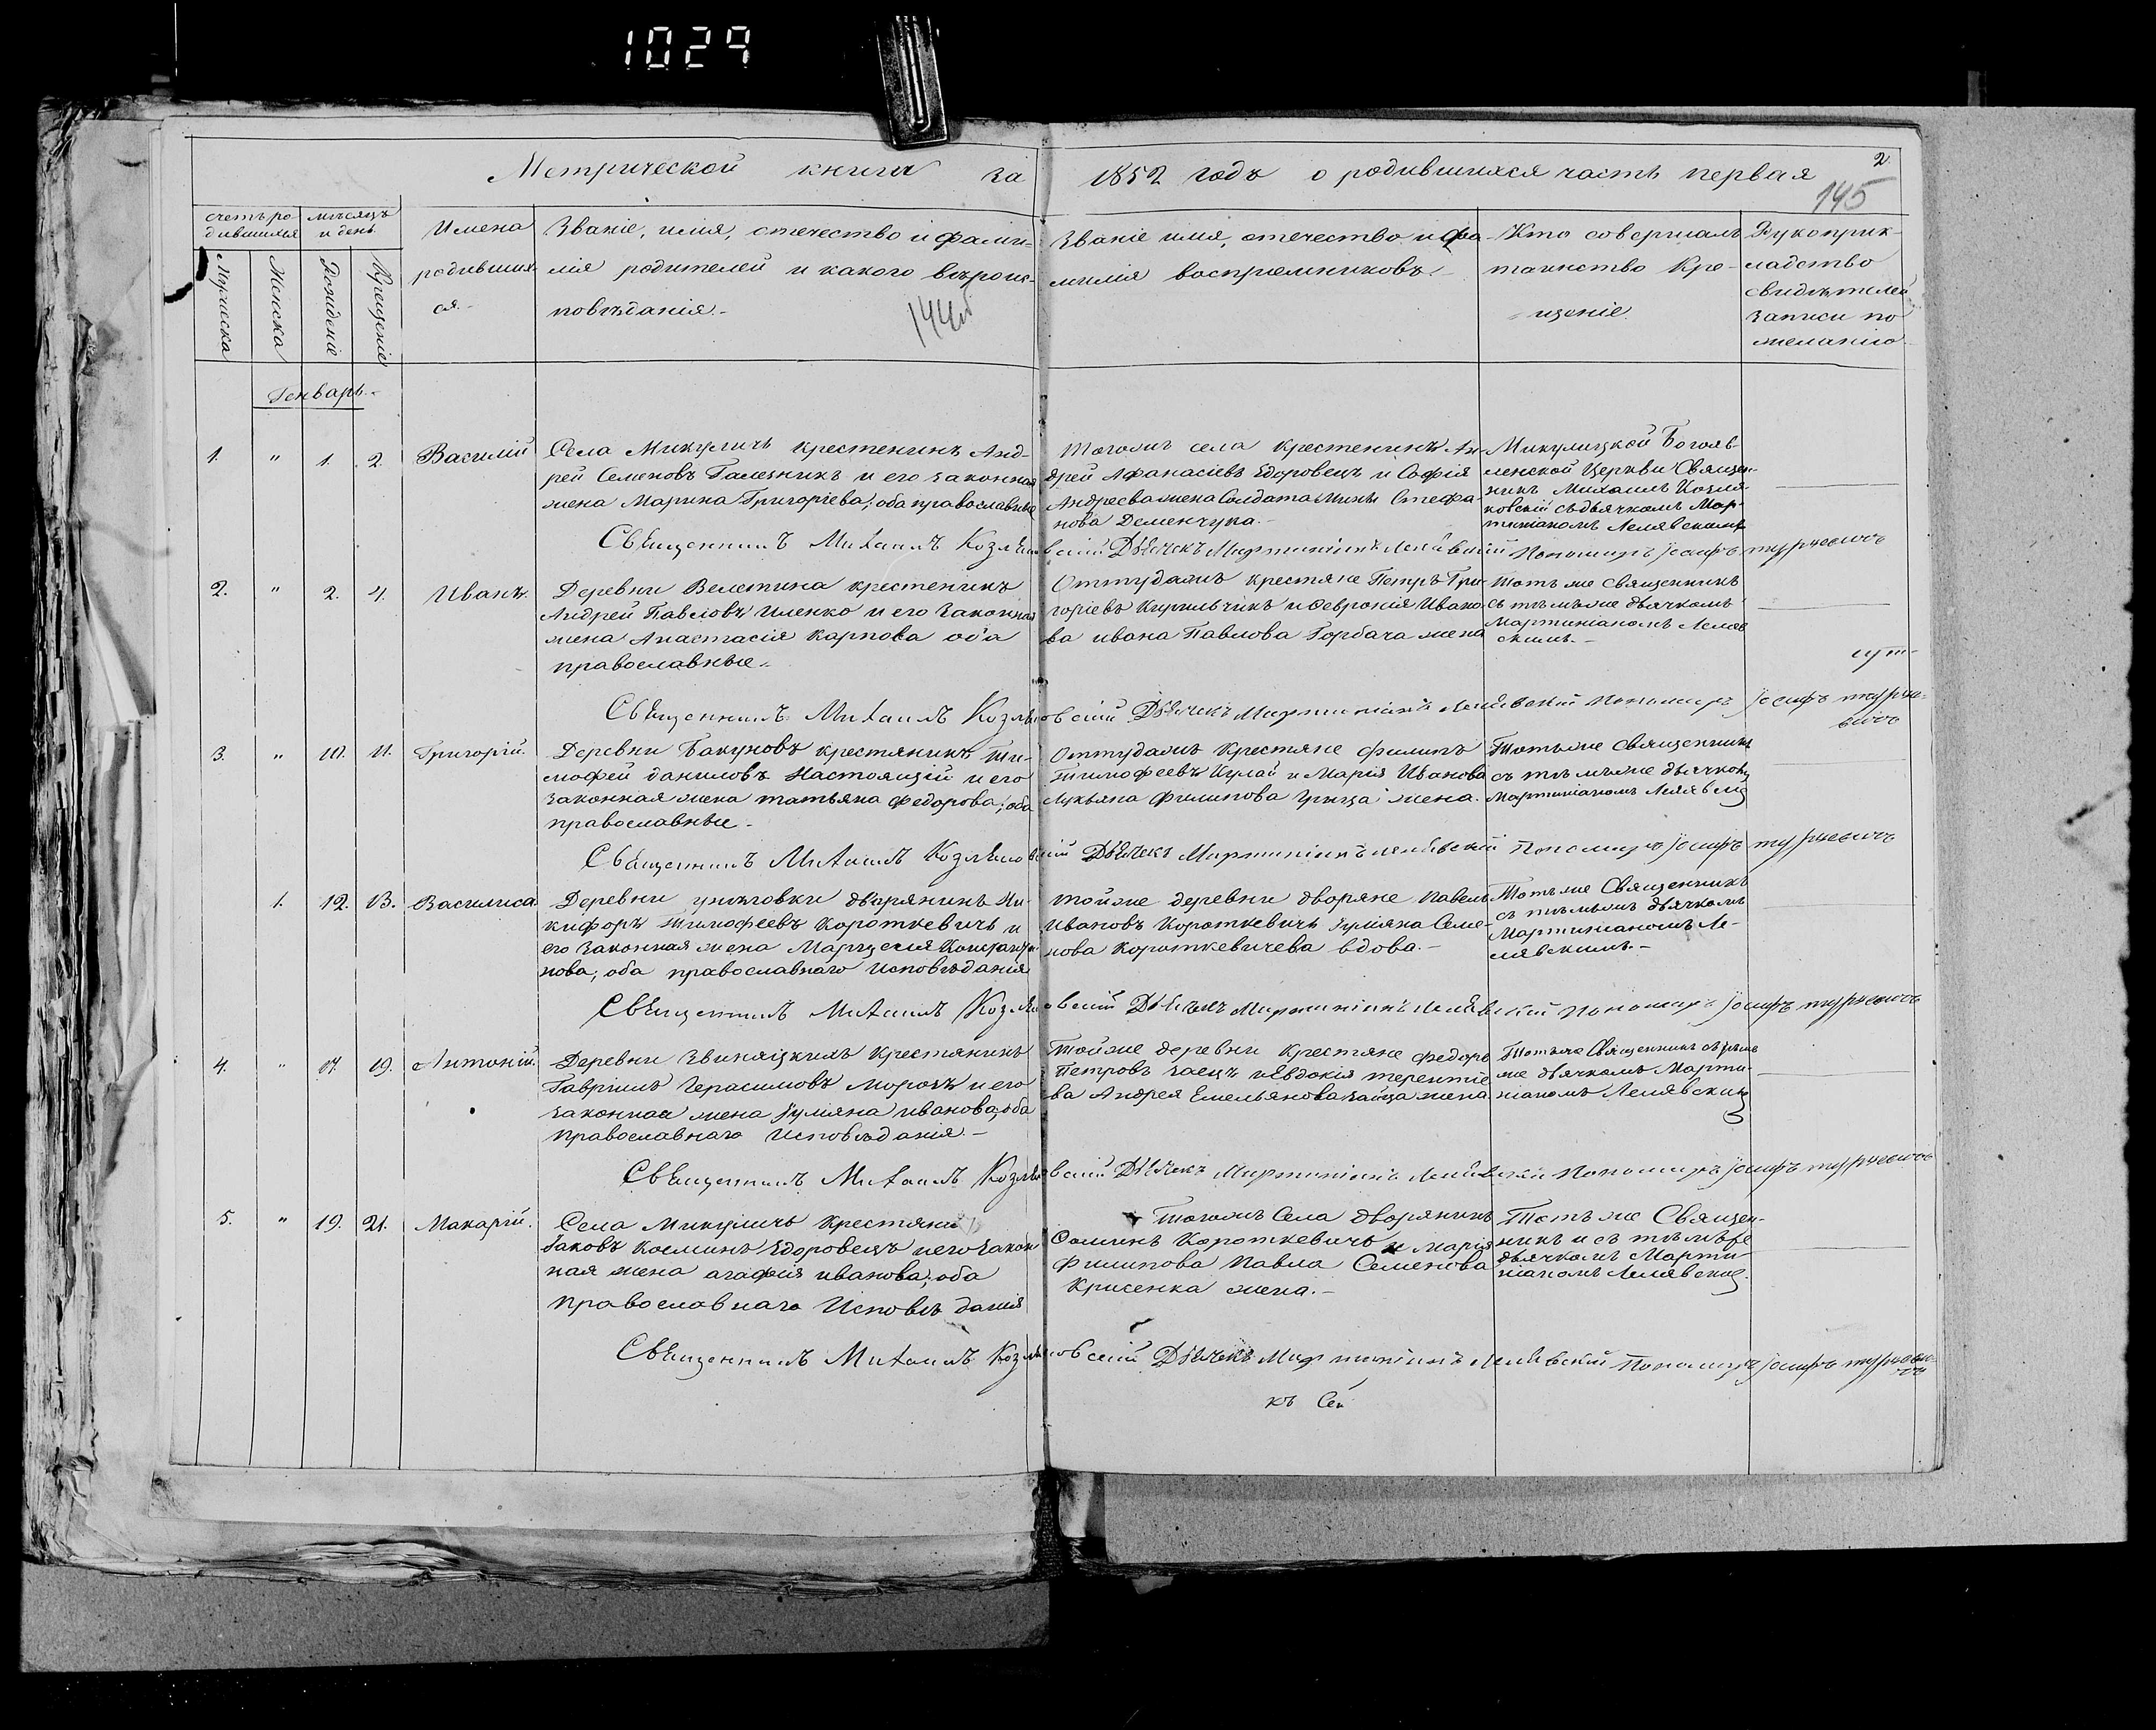 1029
Метрической книги за 1852 годъ о родившихся часть первая
2
145
счетъ родившихся
мѣсяцъ и день
Мужеска
Женска
Рожденіе
Крещеніе
Имена
родивших
ся.-
Званіе, имя, отечество и фами-
лія родителей и какого вѣроис-
повѣданія.-
144об
Званіе имя, отечество и фа-
милія воспріемниковъ.-
Кто совершалъ
таинство Кре-
щеніе
Рукоприк-
ладство
свидѣтелей
записи по
желанію
Генварь.-
1. " 1. 2. Василій
Села Микуличъ крестенинъ Анд-
рей Семеновъ Галезникъ и его законная
жена Марина Григоріева; оба православные
Тогожъ села крестенинъ Ан-
дрей Афанасіевъ Здоровецъ и Софія
Андреева жена Солдата Мины Стефа-
нова Деменчука.-
Микулицкой Богояв-
ленской Церкви Священ-
никъ Михаилъ Козля-
ковскій съ дьячкомъ Мар-
тиніаномъ Лелявскимъ
Священникъ Михаилъ Козляковскій Дьячекъ Мартиніанъ Лелявскій Пономарь Іосифъ Турчевичъ
2. " 2. 4. Иванъ.
Деревни Велетина крестенинъ
Андрей Павловъ Иленко и его законная
жена Анастасія Карпова оба
православные.-
Оттудажъ крестяне Петръ Гри-
горіевъ Кирильчикъ и Февронія Ивано-
ва ивана Павлова Горбача жена
Тотъ же священникъ
съ тѣмъже дьячкомъ
Мартиніаномъ Леляв
скимъ.-
Священникъ Михаилъ Козляковскій Дьячекъ Мартиніанъ Лелявскій Пономарь Іосифъ Турче-
вичъ
3. " 10. 11. Григорій.
Деревни Бакуновъ крестянинъ Ти-
мофей даниловъ Настоящій и его
законная жена татьяна Федорова; оба
православные-
Оттудажъ Крестяне филипъ
Тимофеевъ Кулай и Марія Иванова
Лукьяна Филипова Грица жена.
Тотъже Священникъ
съ тѣмъже дьячкомъ
Мартиніаномъ Лелявски
Священникъ Михаилъ Козляковскій Дьячекъ Мартиніанъ Лелявскій Пономарь Іосифъ Турчевичъ
1. 12. 13. Василиса
Деревни дворянинъ Ни-
кифоръ Тимофеевъ Короткевичъ и
его законная жена
нова; оба православнаго исповѣданія
Тойже деревни дворяне Павелъ
Ивановъ Короткевичъ Іуліяна Семе-
нова Короткевичева вдова.-
Тотъже Священникъ
съ тѣмъже дьячкомъ
Мартиніаномъ Ле-
лявскимъ.-
Священникъ Михаилъ Козляковскій Дьячекъ Мартиніанъ Лелявскій Пономарь Іосифъ Турчевичъ
4. " 17. 19. Антоній.
Деревни Звиняцкихъ Крестянинъ
Гавріилъ Герасимовъ Морозъ и его
законная жена Іуліяна иванова; оба
православнаго исповѣданія.-
Тойже деревни Крестяне Федоръ
Петровъ Заецъ и Евдокія терентіе
ва Андрея Емельянова Зайца жена.
Тотъже Священникъ съ тѣмъ
же дьячкомъ Марти-
ніаномъ Лелявским
Священникъ Михаилъ Козляковскій Дьячекъ Мартиніанъ Лелявскій Пономарь Іосифъ Турчевичъ
5. " 19. 21. Макарій.
Села Микуличъ Крестянинъ
Іаковъ Косминъ Здоровецъ и его закон
ная жена агафія иванова; оба
православнаго Исповѣданія
Тогожъ Села дворянинъ
Короткевичъ и Марія
Филипова Павла Семенова
Крисенка жена.-
Тотъ же Священ-
никъ и съ тѣмъже
дьячкомъ Марти-
ніаномъ Лелявским.
Священникъ Михаилъ Козляковскій Дьячекъ Мартиніанъ Лелявскій Пономарь Іосифъ Турчеви-
чъ
къ Сей